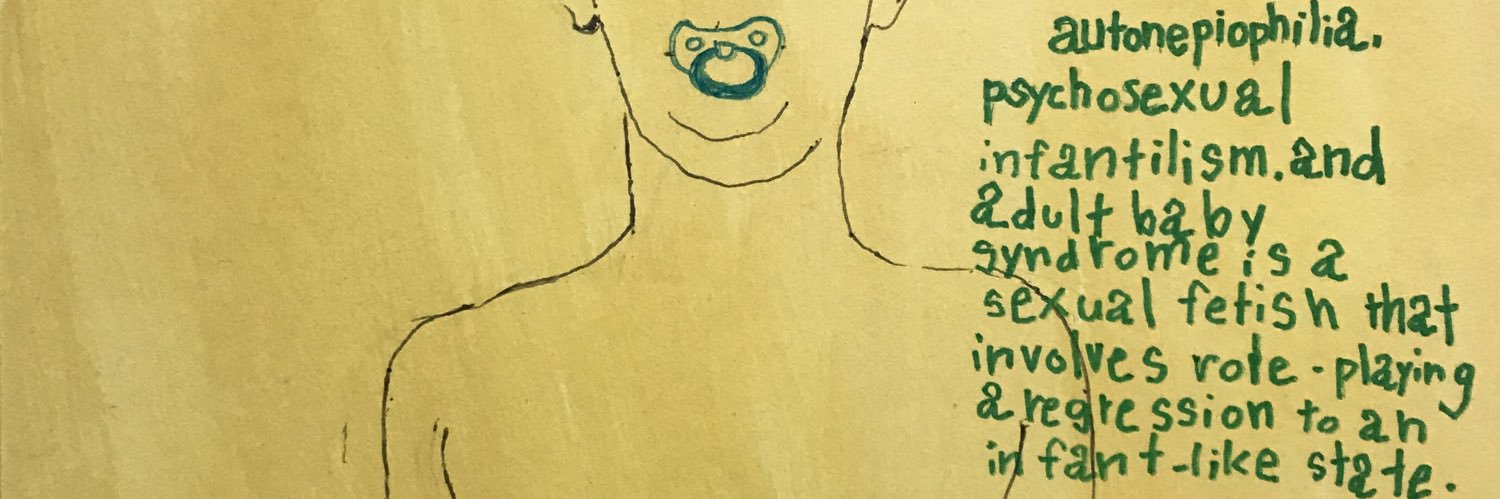 autonepiophilia.
psychosexual
infantilism.and
adult baby
syndrome is a
sexual fetish that
involves role-playing
a regression to an
infant-like state.